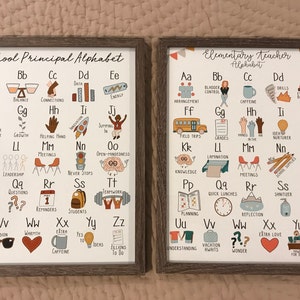 ool Principal Alphabet
Bb Cc Dd Ee
Balance Connections Data Energy
Gg Hh Ii Jj
Helping Hand
Ll Mm Nn Oo
Leadership Meetings Never Stops Open-mindedness
Qq Rr Ss Tt
Questions Reminders Students Teamwork
Vv Ww Xx Yy Zz
Warmth Extra Caffeine Yes to Ideas
Elementary Teacher
Alphabet
Aa Bb Cc Dd
Arrangement Bladder Control Caffeine Drills
Ff Gg Hh Ii
Field Trips Grades Idea Nurturer
Kk Ll Mm Nn
Knowledge Lamination Meetings Needs
Pp Qq Rr Ss
Planning Quick Lunches Reflection Sanitizer
Uu Vv Ww Xx Yy
Understanding Vacation Awaits Wonder Extra Love